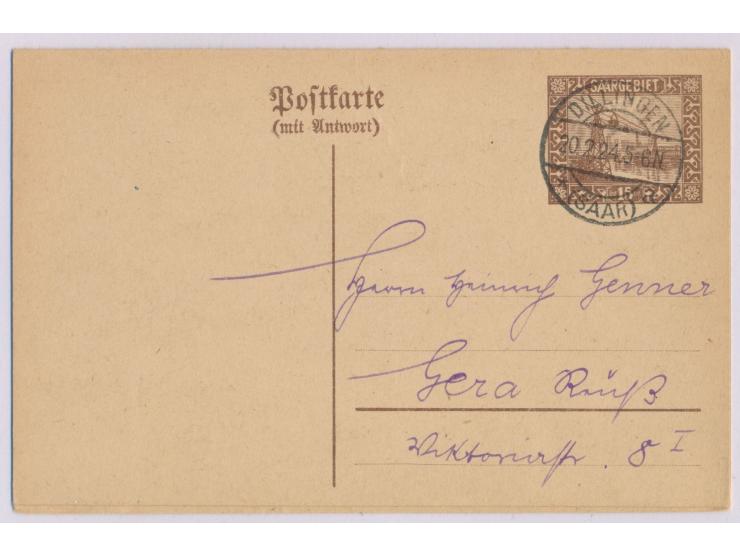 Postkarte
(mit Antwort)
SAARGEBIET
15
DILLINGEN
20.2.24.5-6N
(SAAR)
Herrn Heinrich Genner
Gera Reuß
Viktoriastr. 8 I